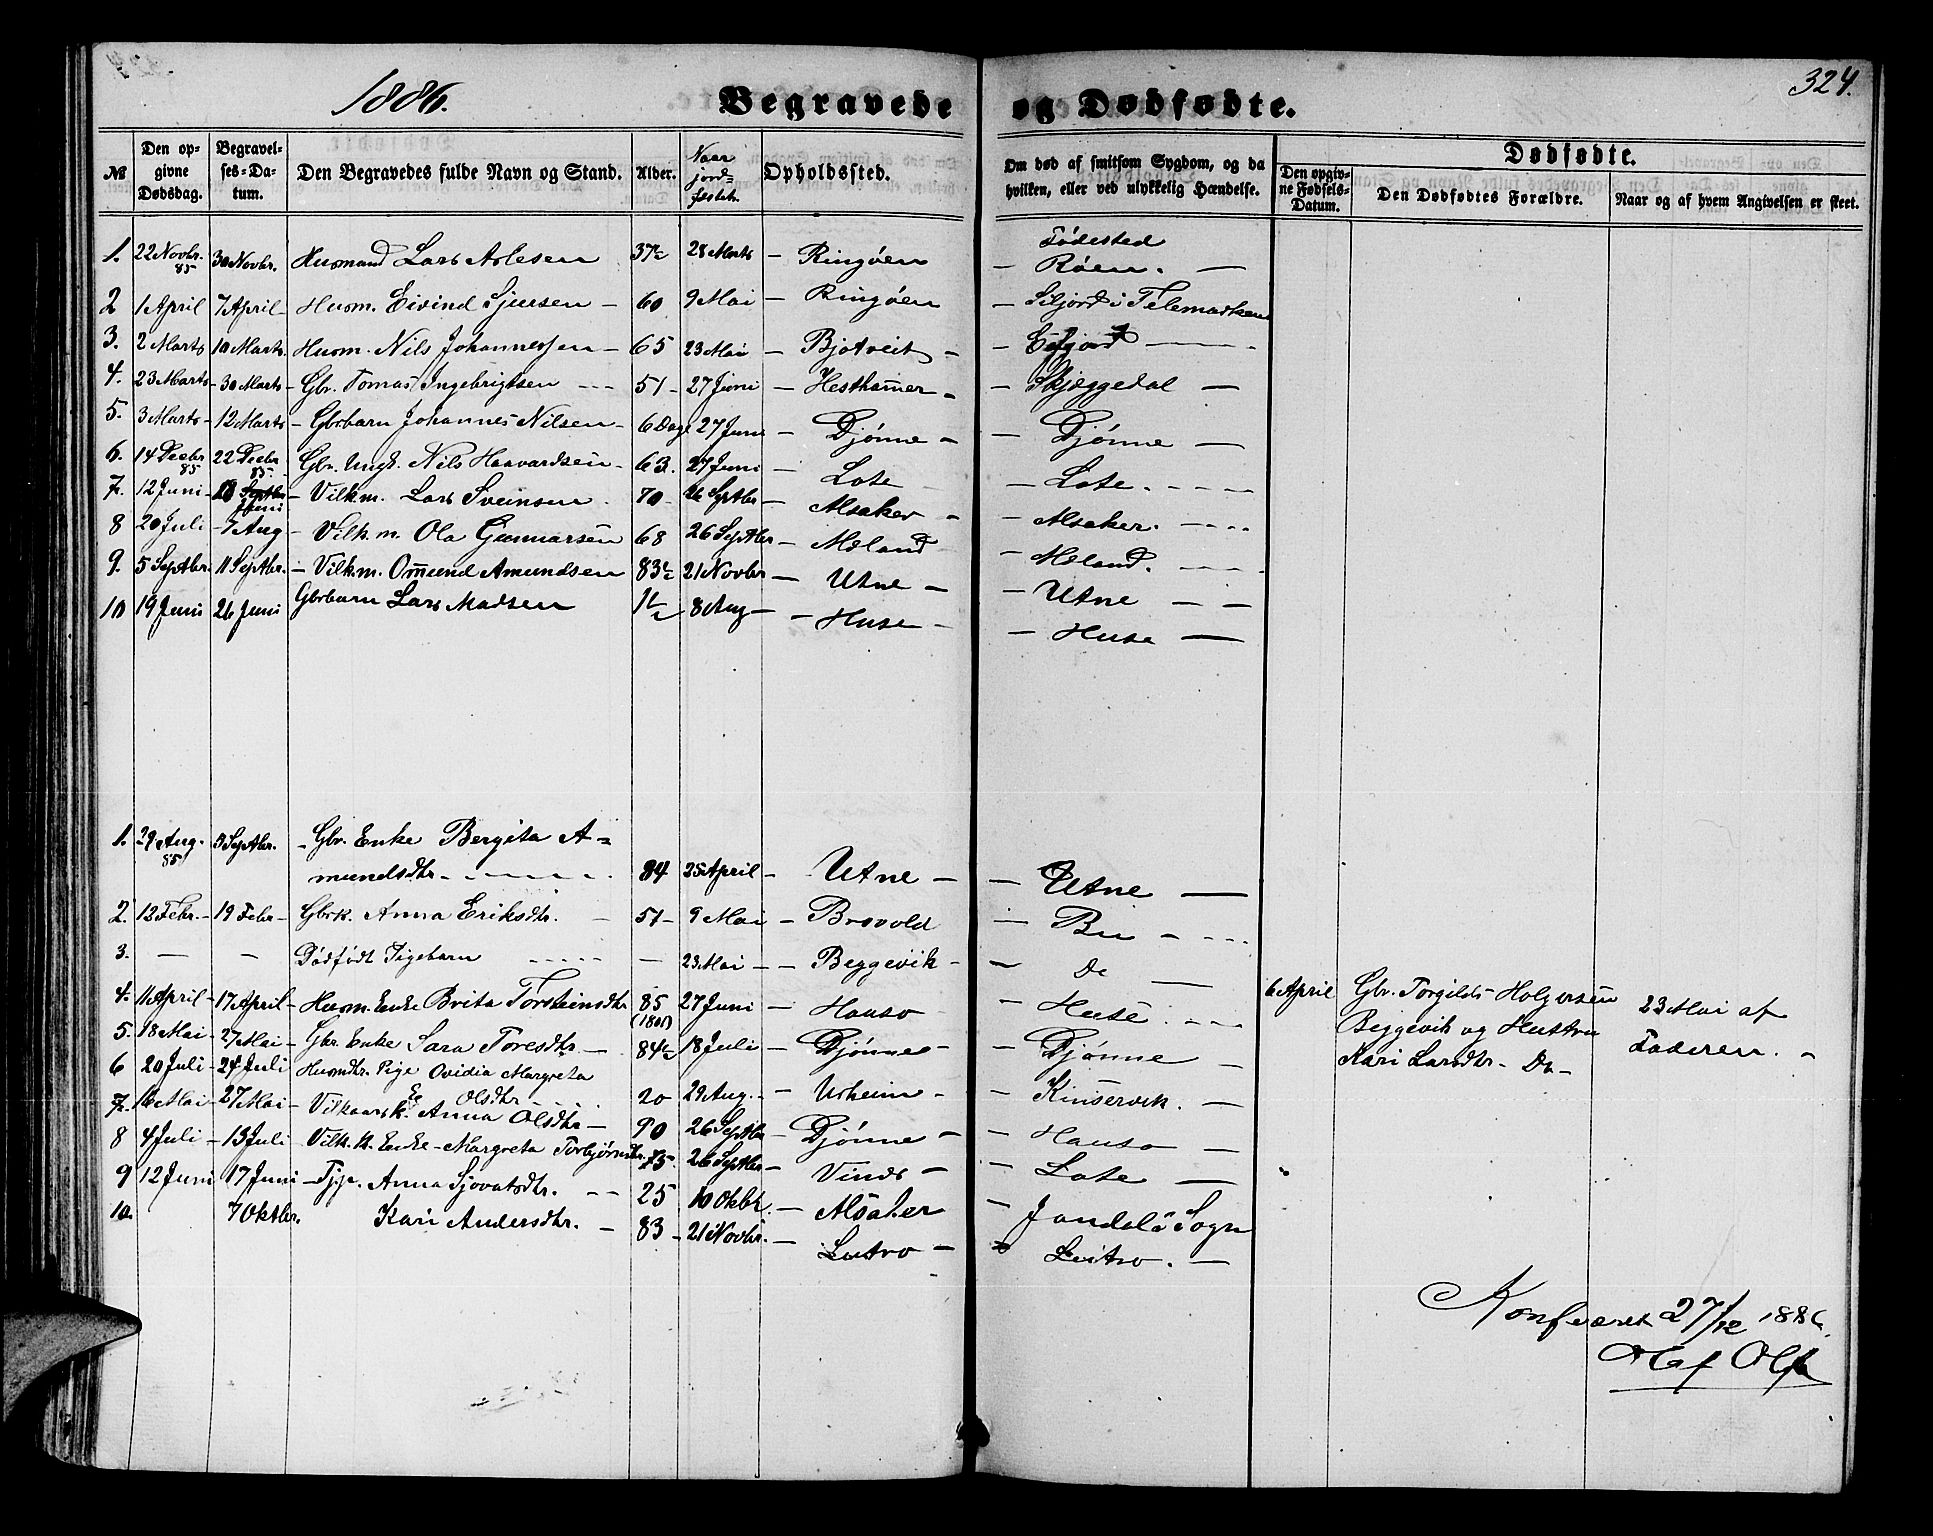 1886.
Begravede og Dødfødte.
324.
№
Den opgivne Dødsdag.
Begravelses-Datum.
Den Begravedes fulde Navn og Stand.
Alder.
Naar jordfæstet.
Opholdssted.
Om død af smitsom Sygdom, og da hvilken, eller ved ulykkelig Hændelse.
Dødfødte.
Den opgivne Fødsels-Datum.
Den Dødfødtes Forældre.
Naar og af hvem Angivelsen er skeet.
Fødested
1. 22 Novbr. 85 30 Novbr. Husmand Lars Aslesen 37½ 28 Marts - Ringøen - Røen. -
2 1 April 7 April - Husm. Eivind Sjursen - 60 9 Mai - Ringøen - Siljord i Telemarken
3. 2 Marts 10 Marts. Husm. Nils Johannessen - 65 23 Mai - Bjotveit - - Eifjord -
4. 23 Marts - 30 Marts - Gbr. Tomas Ingebrigtsen - 51 - 27 Juni - Hesthamer - - Skjæggedal -
5. 3 Marts - 12 Marts - Gbrbarn Johannes Nilsen - 6 Dage 27 Juni - Djønne - - Djønne -
6. 14 Decbr 85 22 Decbr 85 Gbr. Ungk. Nils Haavardsen - 63. 27 Juni - Lote - Lote.
7. 12 Juni - 18 Septbr Juni - Vilkm. Lars Sveinsen 70 - 26 Septbr - Alsaker - - Alsaker.
8 20 Juli - 7 Aug - Vilk. m. Ola Gunnarsen 68 26 Septbr - Mæland - Mæland.
9. 5 Septbr. 11 Septbr. - Vilkm. Omund Amundsen 83½ 21 Novbr - Utne - - Utne -
10 19 Juni 26 Juni Gbrbarn Lars Madsen 1½ 8 Aug - - Huse - - Huse -
1. 29 Aug. 85 3 Septbr. - Gbr. Enke Bergita A=
mundsdtr. 84 25 April - Utne - - Utne -
2. 12 Febr. - 19 Febr - Gbrk. Anna Eriksdtr. - 51 - 9 Mai - Brovold - Bu -
3. - - Dødfødt Pigebarn - 23 Mai - - Beggevik - - Do -
6 April Gbr. Torgils Holgersen
Beggevik og Hustru
Kari Larsdtr. Do -
23 Mai af
Faderen. -
4. 11 April - 17 April - Husm. Enke Brita Torsteinsdtr 85 (1801) 27 Juni - Hauso - Huse.
5. 18 Mai - 27 Mai - Gbr. Enke Sara Toresdtr. - 84½ 18 Juli - Djønne - - Djønne -
6 20 Juli - 24 Juli Husmdtr. Pige Ovidia Margreta
Olsdtr - 20 29 Aug. - Urheim - - Kinservik. -
7. 16 Mai - 27 Mai - Vilkaarsk. Anna Olsdtr - 90 26 Septbr - Djønne - - Hauso -
8 4 Juli - 13 Juli Vilk. k. Enke - Margreta Torbjørnsdtr. 75. 26 Septbr - Vines - - Lote -
9 12 Juni 17 Juni - Tjp. Anna Sjovatsdtr. - - 25 10 Oktbr. - Alsaker - Jondals Sogn
10. 7 Oktbr. Kari Andersdtr. - 83 - 21 Novbr. - Lutro - Lutro. -
Konfereret 27/12 1886.
Olaf Olf